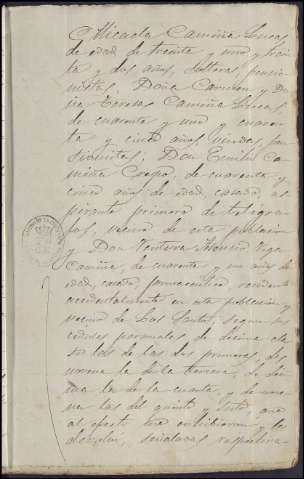 Micaela Camiña Lucas
de edad de treinta y uno y trein
ta y dos años, solteras, pensio
nistas, Doña Carmen y Do
ña Teresa Camiña
de cuarenta y uno y cuaren
ta y cinco años, viudas, pen
sionistas, Don Emilio Ca
miña Crespo, de cuarenta y
cinco años de edad, casado, as
pirante primero de telégra
fos, vecino de esta poblacion
y Don Ventura Vega
Camiña, de cuarenta y un años de
edad, casado, farmaceutico residente
accidentalmente en esta poblacion y
vecino de segun sus
cédulas personales de décima cla
se las de las dos primeras, de
la de la tercera, de déci
ma la de la cuarta, y de nove
na las del quinto y sesto, que
al efecto me exhibieron y les
devolví, señaladas respectiva